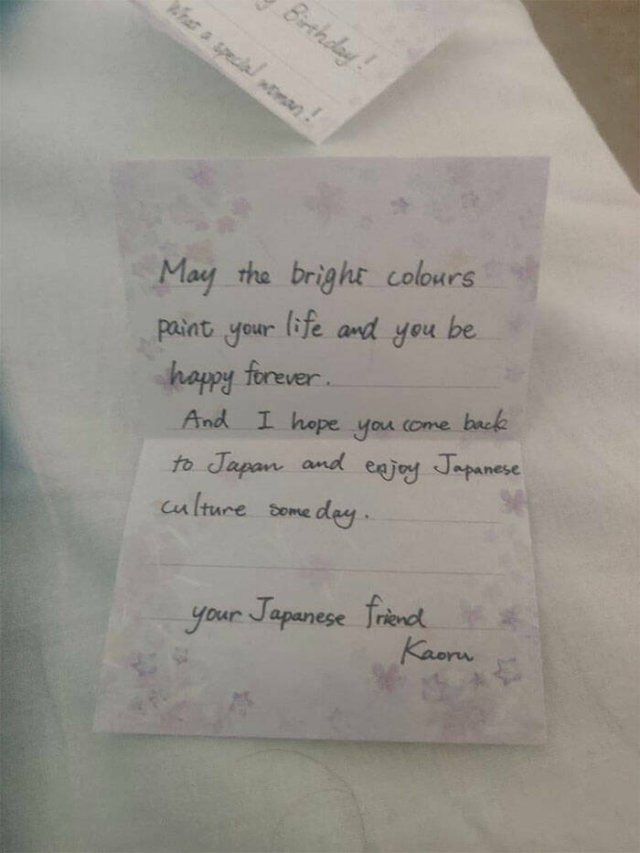 Birthday!
What a special woman!
May the bright colours
paint your life and you be
happy forever.
And I hope you come back
to Japan and enjoy Japanese
culture someday.
your Japanese friend
Kaoru